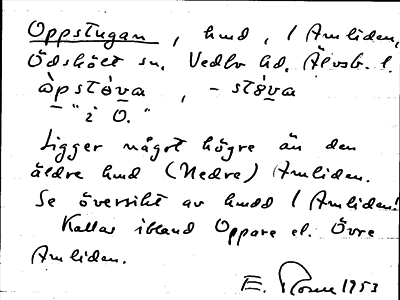 Oppstugan, hmd, / Amliden,
Ödskölt sn. Vedbo hd. Älvsb. l.
òpstòva, - stòva
"i Ö."
Ligger något högre än den
äldre hmd (Nedre) Amliden.
Se översikt av hmdd / Amliden!
Kallas ibland Oppare el. Övre
Amliden.
E. 1953